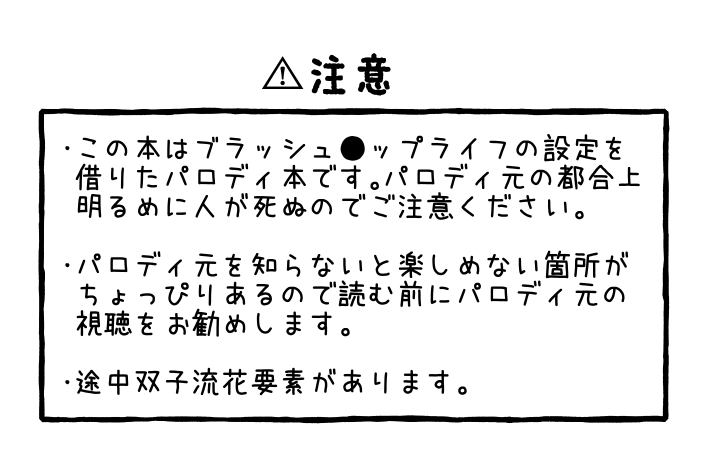 ⚠注意
・この本はブラッシュ●ップライフの設定を
借りたパロディ本です。パロディ元の都合上
明るめに人が死ぬのでご注意ください。
・パロディ元を知らないと楽しめない箇所が
ちょっぴりあるので読む前にパロディ元の
視聴をお勧めします。
・途中双子流花要素があります。